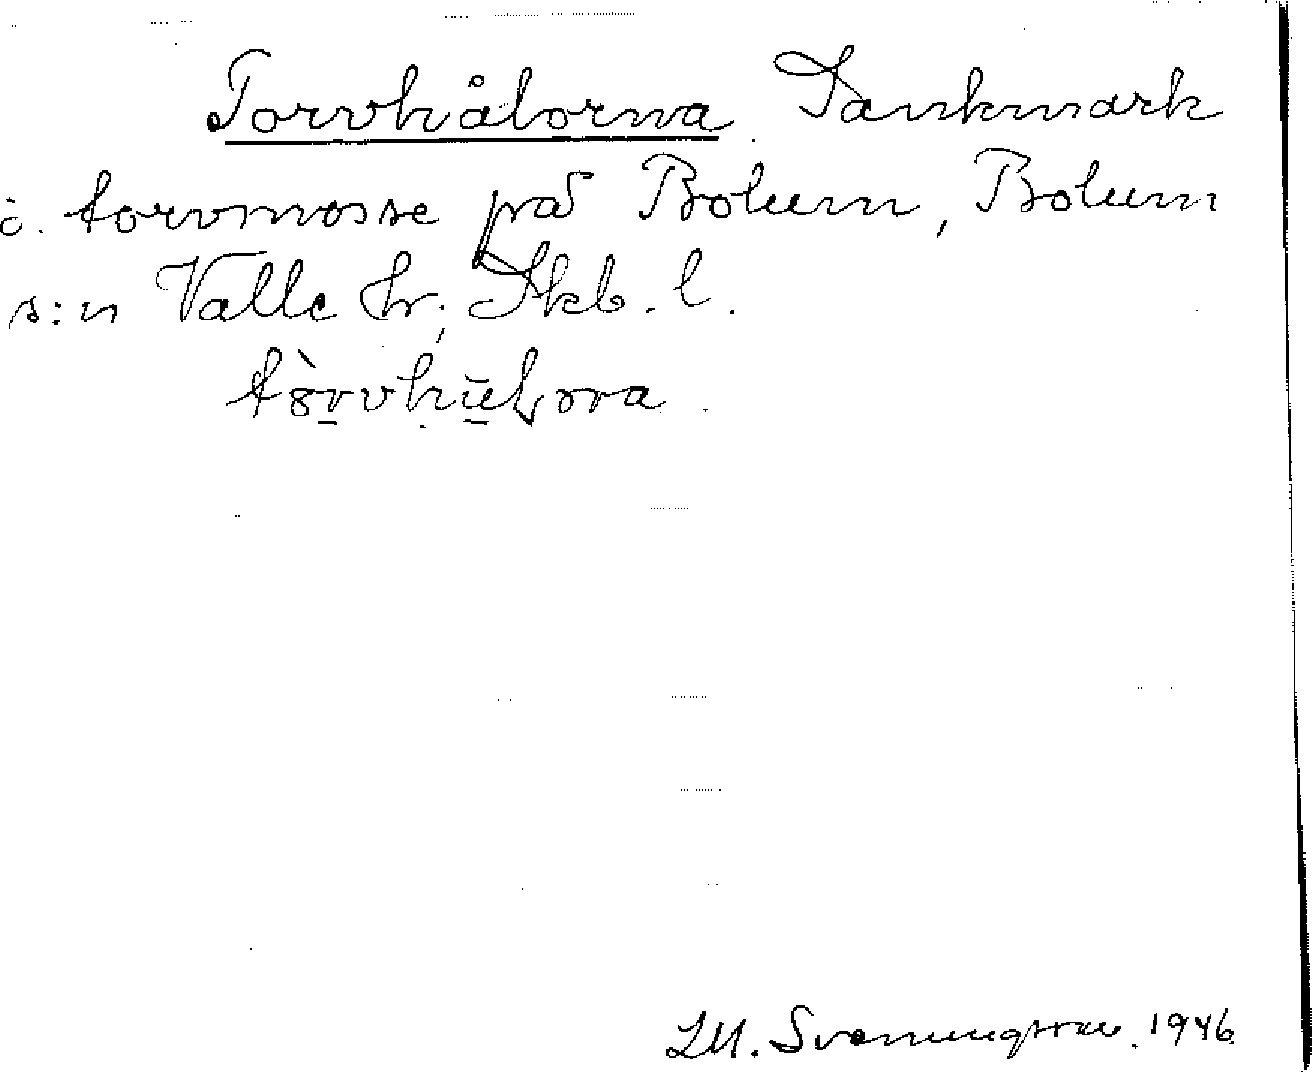 Torvhålorna. Sankmark
o. torvmosse på Bolum, Bolum
s:n Valle hr, Skb. l.
L M. Svenungsson. 1946